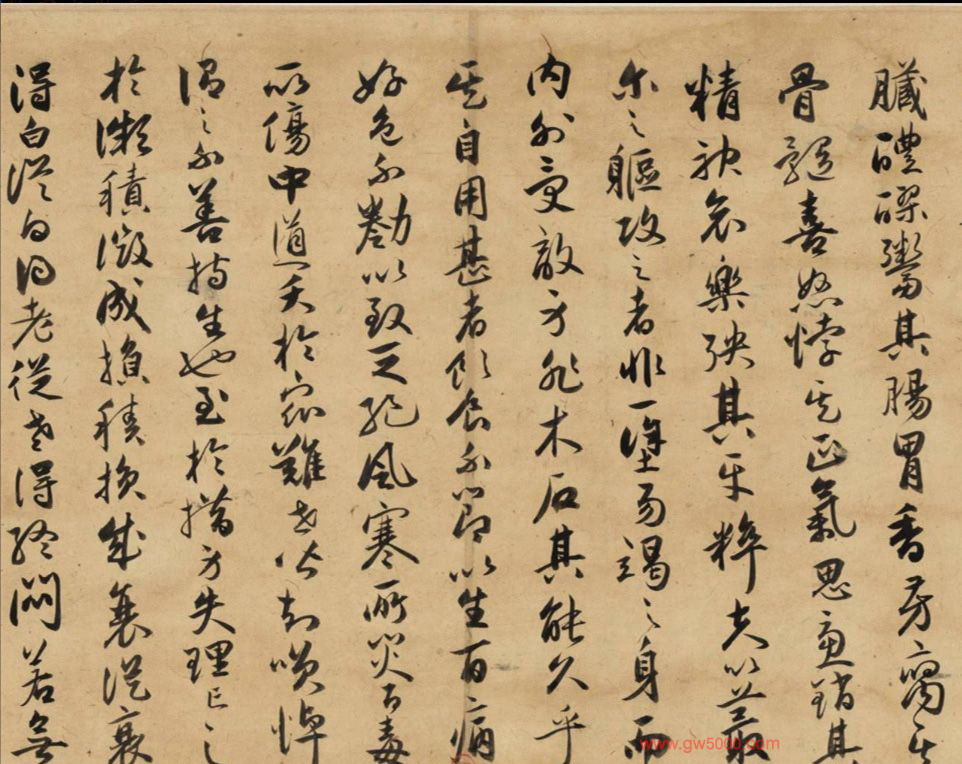 臟醴醪鬻其腸胃香芳腐其
骨髓喜怒悖其正氣思慮銷其
精神哀樂殃其平粹夫以蕞
尒之軀攻之者非一塗易竭之身而
內外受敵身非木石其能久乎
其自用甚者飲食不節以生百病
好色不勌以致乏絕風寒所災百毒
所傷中道夭於眾難世皆知笑悼
謂之不善持生也至於措身失理亡之
於微積微成損積損成衰從衰
得白從白得老從老得終悶若無
www.gw5000.com